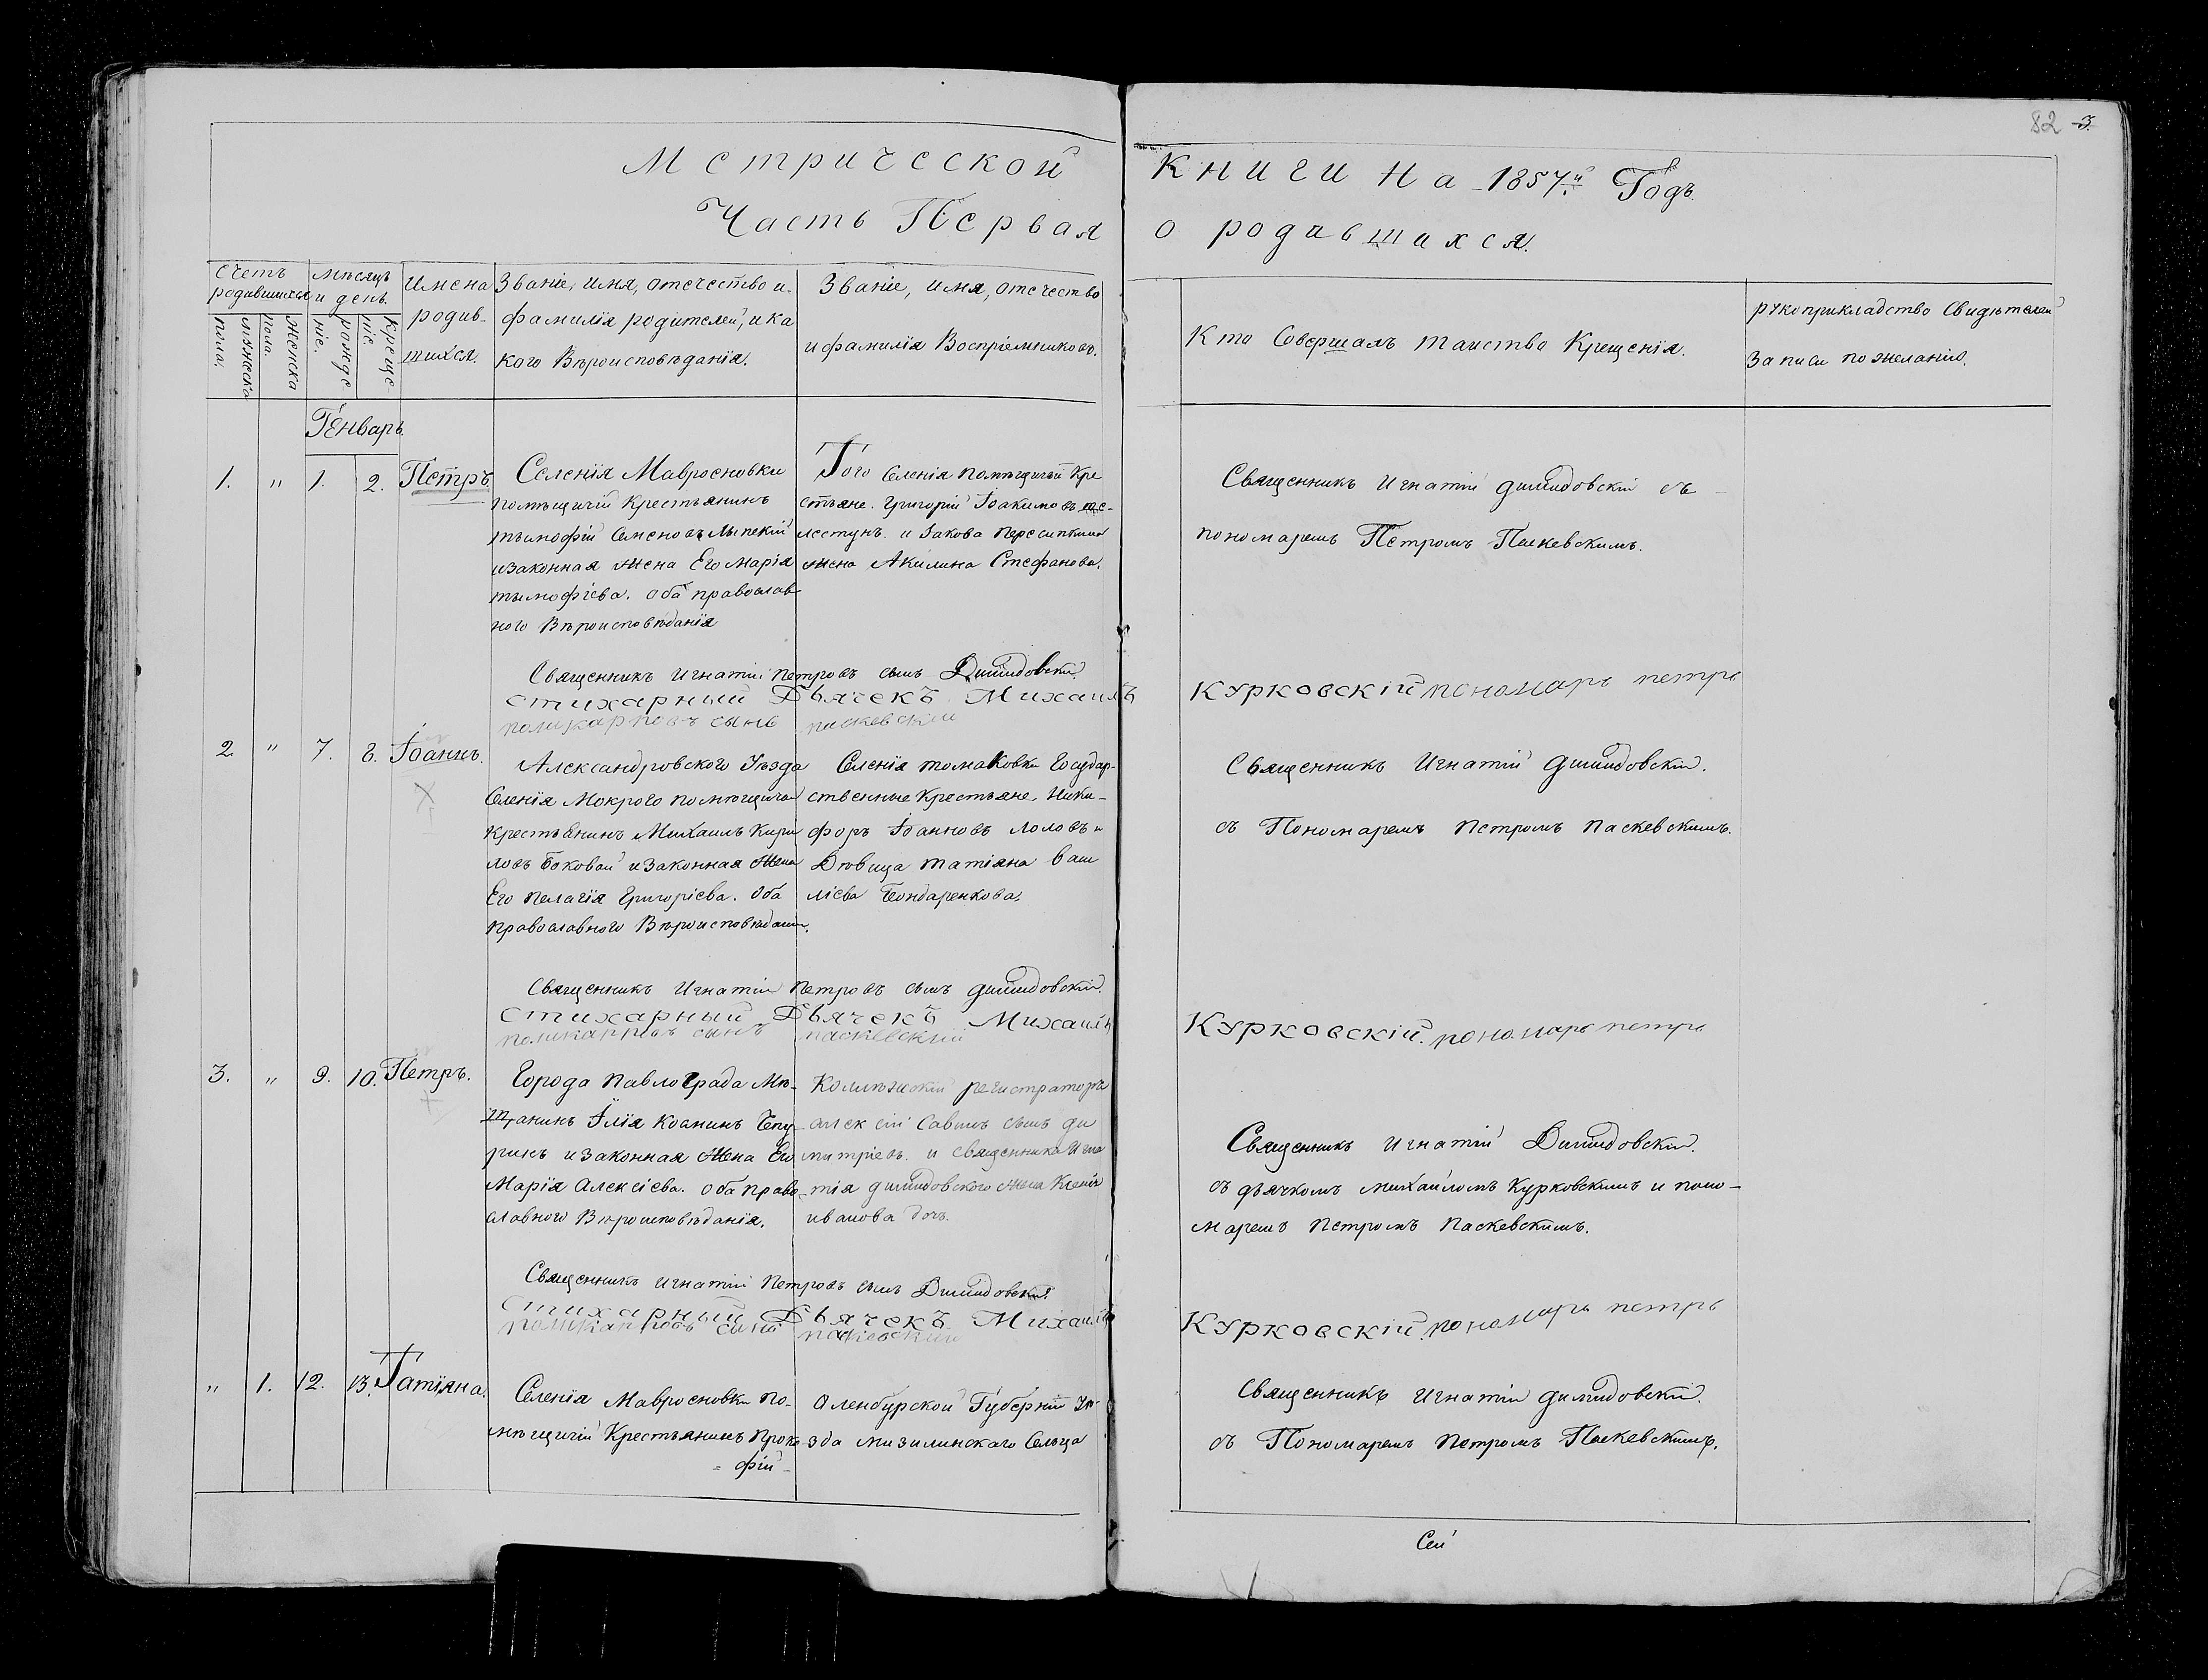 82 3.
Метрической книги на 1857й Годъ
Часть Первая о родившихся.
Счетъ родившихся
мужеска пола.
женска пола.
Мѣсяцъ и день
рожденіе.
крещеніе.
Имена родившихся.
Званіе, имя, отечество и
фамилія родителей, и ка
кого Вѣроисповѣданія.
Званіе, имя, отечество
и фамилія Воспріемниковъ.
Кто Совершалъ таинство Крещенія.
рукоприкладство Свидѣтелей
записи по желанію.
Генварь.
1. " 1. 2. Петръ.
Селенія Мавроеновки
помѣщичій Крестьянинъ
тымофій Семеновъ
и законная жена Его Марія
тымофіева. оба православ
ного Вѣроисповѣданія
Того Селенія помѣщичьи Кре
стьяне. Григорій Іоакимовъ ше-
лестунъ. и Іакова
жена Акилина Стефанова.
Священникъ Игнатій Димидовскій съ
пономаремъ Петромъ Паскевскимъ.
Священникъ Игнатій Петровъ сынъ Димидовскій
стихарный Дьячекъ Михаилъ Курковскій пономарь петръ
поликарповъ сынъ паскевский
2. " 7. 8. Іоаннъ.
Александровского Уѣзда
Селенія Мокрого помѣщичій
крестьянинъ Михаилъ Кири
ловъ Боковой и законная Жена
Его Пелагія Григоріева. Оба
православного Вѣроисповѣданія.
Селенія томаковки Государ-
ственные Крестьяне, Ники-
форъ Іоанновъ Лоловъ и
Дѣвица татіяна Васи
ліева Бондаренкова.
Священникъ Игнатій Димидовскій.
съ Пономаремъ Петромъ Паскевскимъ.
Священникъ Игнатій Петровъ сынъ Димидовскій.
стихарный Дьячекъ Михаилъ Курковскій. пономарь петръ
поликарповъ сынъ паскевский
3. " 9. 10. Петръ.
Города Павлограда Мѣ-
щанинъ Илія
ринъ и законная Жена Его
Марія Алексіева. оба право
славного Вѣроисповѣданія.
Коллѣжскій регистраторъ
алексій Савинъ сынъ ди
митріевъ. и Священника Игна
тія димидовского жена Ксенія
иванова дочь.
Священникъ Игнатій Димидовскій.
съ дьячкомъ Михаиломъ Курковскимъ и поно-
маремъ Петромъ Паскевскимъ.
Священникъ Игнатій Петровъ сынъ Димидовскій
стихарный Дьячекъ Михаилъ Курковскій. пономарь петръ
поликарповъ сынъ паскевский
" 1. 12. 13. Татіяна.
Селенія Мавроеновки по-
мѣщичій Крестьянинъ Проко
= фій -
Аленбурской Губерніи Уѣ-
зда мизилинскаго Сельца
Священникъ Игнатій Димидовскій.
съ Пономаремъ Петромъ Паскевскимъ.
Сей